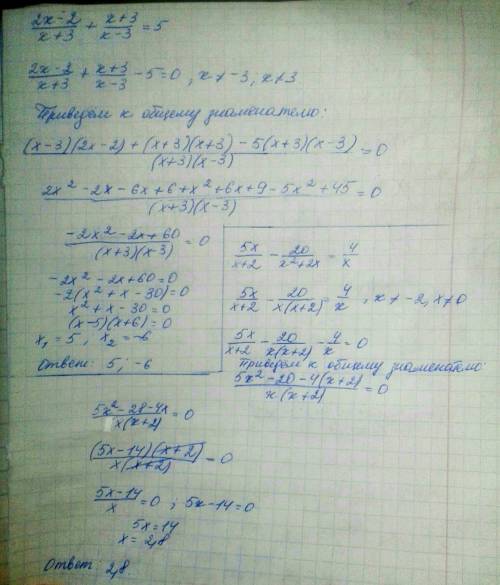 (2x-2)/(x+3) + (x+3)/(x-3) = 5
(2x-2)/(x+3) + (x+3)/(x-3) - 5 = 0 , x ≠ -3, x ≠ 3
Приведём к общему знаменателю:
((x-3)(2x-2) + (x+3)(x+3) - 5(x+3)(x-3))/((x+3)(x-3)) = 0
(2x²-2x-6x+6+x²+6x+9-5x²+45)/((x+3)(x-3)) = 0
(-2x²-2x+60)/((x+3)(x-3)) = 0
-2x²-2x+60=0
-2(x²+x-30)=0
x²+x-30=0
(x-5)(x+6)=0
x₁=5 ; x₂=-6
Ответ: 5; -6
5x/(x+2) - 20/(x²+2x) = 4/x
5x/(x+2) - 20/(x(x+2)) = 4/x , x ≠ -2, x ≠ 0
5x/(x+2) - 20/(x(x+2)) - 4/x = 0
Приведём к общему знаменателю:
(5x²-20-4(x+2))/(x(x+2)) = 0
(5x²-28-4x)/(x(x+2)) = 0
((5x-14)(x+2))/(x(x+2)) = 0
(5x-14)/x = 0 ; 5x-14=0
5x=14
x=2,8
Ответ: 2,8.